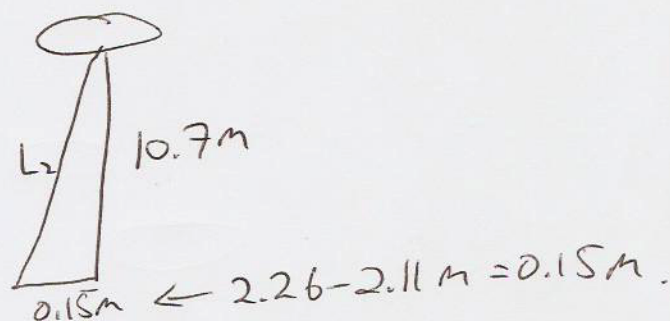 L₂
10.7m
0.15m ← 2.26-2.11m = 0.15m.